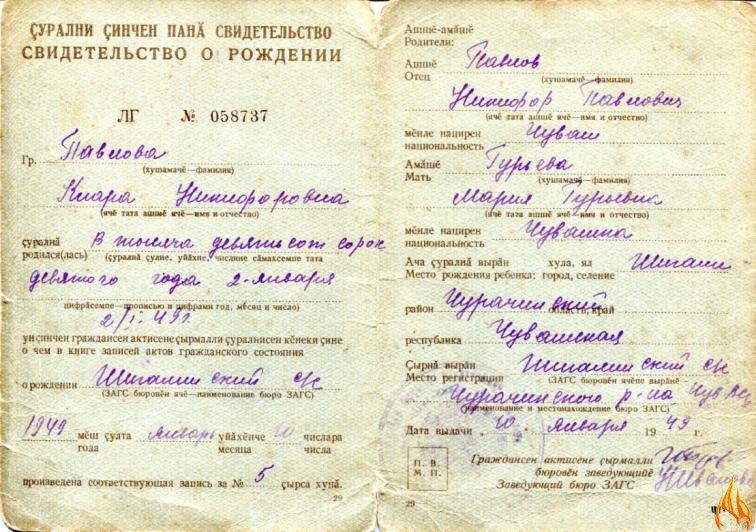 ҪУРАЛНИ ҪИНЧЕН ПАНӐ СВИДЕТЕЛЬСТВО
СВИДЕТЕЛЬСТВО О РОЖДЕНИИ
ЛГ № 058737
Гр. Павлова
(хушамачӗ—фамилия)
Клара Никифоровна
(ячӗ тата ашшӗ ячӗ—имя и отчество)
ҫуралнӑ В тысяча девятьсот сорок
родился(лась) (ҫуралнӑ ҫулне, уйӑхне, числине сӑмахсемпе тата
девятого года 2-января
цифрӑсемпе—прописью и цифрами год, месяц и число)
2/I-49 г.
ун ҫинчен граждансен актисене ҫырмалли ҫуралнисен кӗнеки ҫине
о чем в книге записей актов гражданского состояния
о рождении Шигалинский с/с
(ЗАГС бюровӗн ячӗ—наименование бюро ЗАГС)
1949 мӗш ҫулта январь уйӑхӗнче 10 числара
года месяца числа
произведена соответствующая запись за № 5 ҫырса хунӑ.
29
Ашшӗ-амӑшӗ
Родители:
Ашшӗ Павлов
Отец (хушамачӗ—фамилия)
Никифор Павлович
(ячӗ тата ашшӗ ячӗ—имя и отчество)
мӗнле нацирен Чуваш
национальность
Амӑшӗ Гурьева
Мать (хушамачӗ—фамилия)
Мария Гурьевна
(ячӗ тата ашшӗ ячӗ—имя и отчество)
мӗнле нацирен Чувашка
национальность
Ача ҫуралнӑ вырӑн хула, ял Шигали
Место рождения ребенка: город, селение
район Чурачикский область, край
республика Чувашская
Ҫырнӑ вырӑн Шигалинский с/с
Место регистрации (ЗАГС бюровӗн ячӗпе вырӑнӗ—
Чурачикского р-на
наименование и местонахождение бюро ЗАГС)
Дата выдачи 10 января 1949 г.
П. В.
М. П.
Граждансен актисене ҫырмалли
бюровӗн заведующийӗ
Заведующий бюро ЗАГС
29